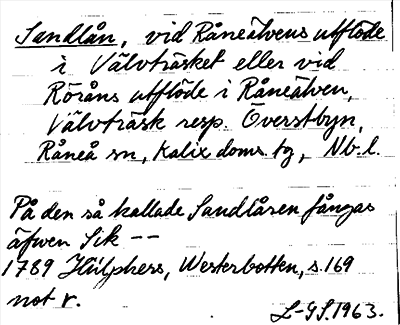 Sandlån, vid Råneälvens utflöde
i Välvträsket eller vid
Röråns utflöde i Råneälven,
Välvträsk resp. Överstbyn,
Råneå sn, Kalix doms. tg, Nb. l.
På den så kallade Sandlåsen fångas
äfwen Sik --
1789 Hülphers, Westerbotten, s. 169
not r.
L-GS. 1963.